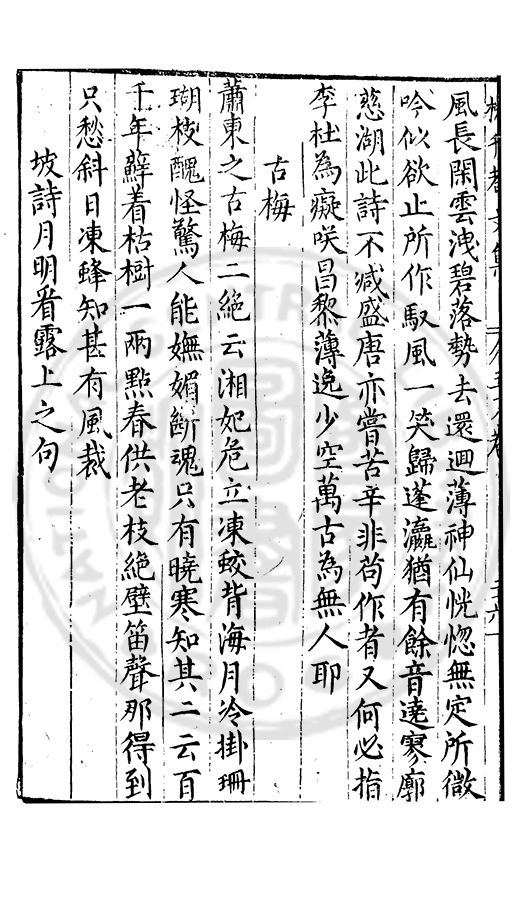 風長閑雲洩碧落勢去還迴薄神仙恍惚無定所微
吟似欲止所作馭風一笑歸蓬瀛猶有餘音遶寥廓
慈湖此詩不减盛唐亦嘗苦辛非苟作者又何必指
李杜為癡咲昌黎薄逸少空萬古為無人耶
古梅
蕭東之古梅二絶云湘妃危立凍鮫背海月冷掛珊
瑚枝醜怪驚人能嫵媚斷魂只有曉寒知其二云百
千年蘚着枯樹一兩點春供老枝絶壁笛聲那得到
只愁斜日凍蜂知甚有風裁
坡詩月明看露上之句